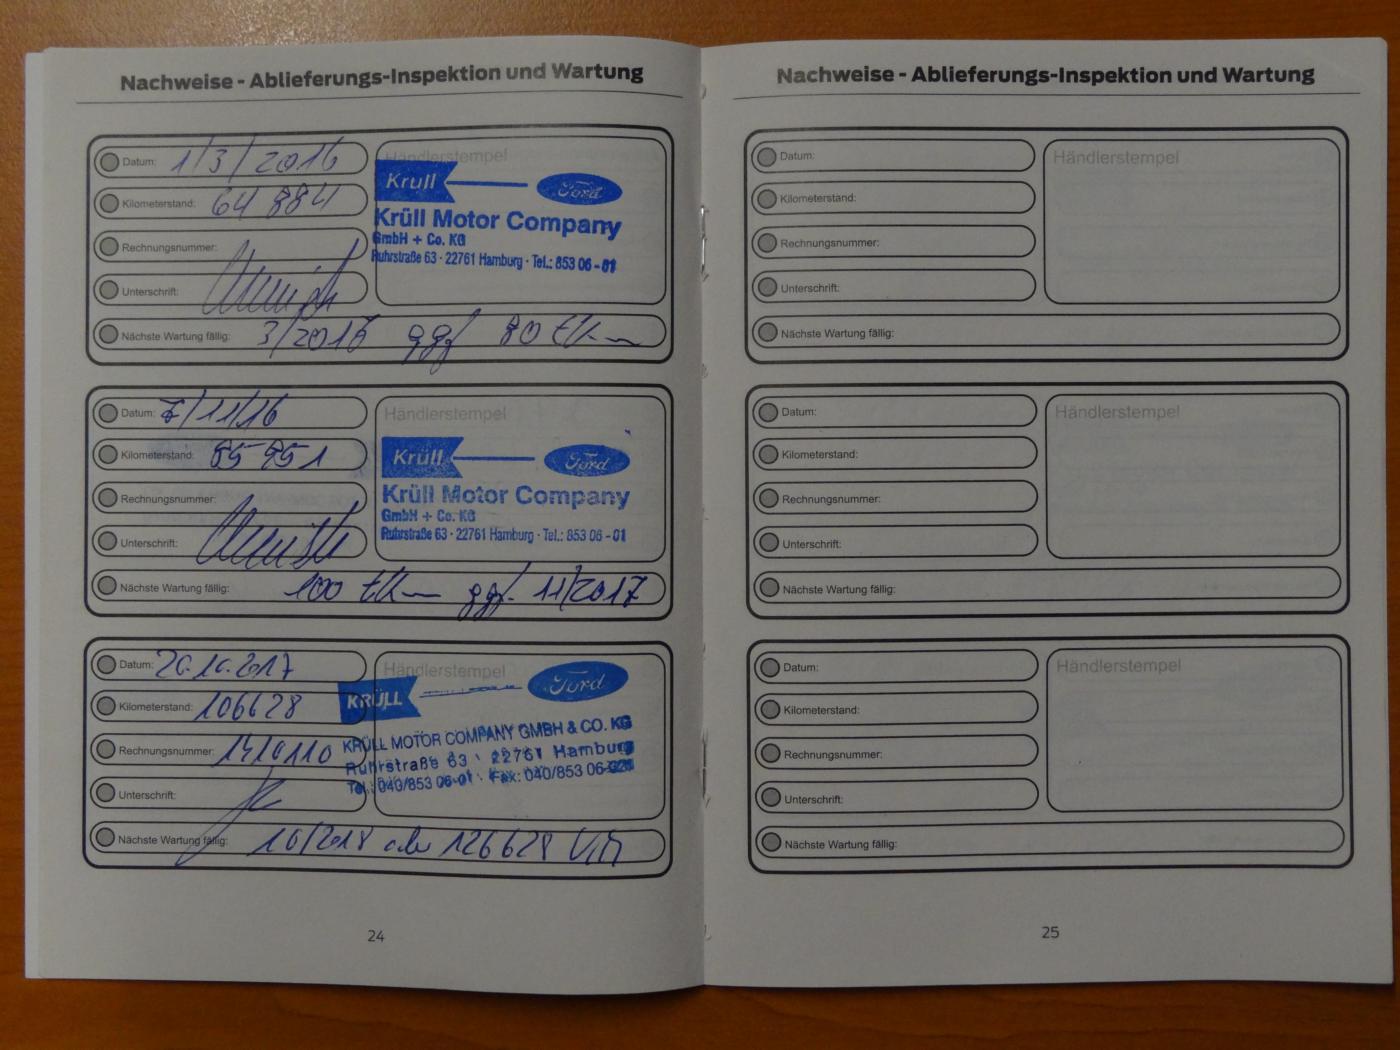 Nachweise - Ablieferungs-Inspektion und Wartung
Datum: 1/3/2016
Kilometerstand: 64 884
Rechnungsnummer:
Unterschrift:
Nächste Wartung fällig: 3/2017 ggf 80 tkm
Händlerstempel
Krüll Ford
Krüll Motor Company
GmbH + Co. KG
Ruhrstraße 63 · 22761 Hamburg · Tel.: 853 06 - 01
Datum: 7/11/16
Kilometerstand: 85 951
Rechnungsnummer:
Unterschrift:
Nächste Wartung fällig: 100 tkm ggf. 11/2017
Händlerstempel
Krüll Ford
Krüll Motor Company
GmbH + Co. KG
Ruhrstraße 63 · 22761 Hamburg · Tel.: 853 06 - 01
Datum: 20.10.2017
Kilometerstand: 106628
Rechnungsnummer: 1410110
Unterschrift:
Nächste Wartung fällig: 10/2018 oder 126628 km
Händlerstempel
KRÜLL Ford
KRÜLL MOTOR COMPANY GMBH & CO. KG
Ruhrstraße 63 · 22761 Hamburg
Tel.: 040/853 06-01 · Fax: 040/853 06-
24
Nachweise - Ablieferungs-Inspektion und Wartung
Datum:
Kilometerstand:
Rechnungsnummer:
Unterschrift:
Nächste Wartung fällig:
Händlerstempel
Datum:
Kilometerstand:
Rechnungsnummer:
Unterschrift:
Nächste Wartung fällig:
Händlerstempel
Datum:
Kilometerstand:
Rechnungsnummer:
Unterschrift:
Nächste Wartung fällig:
Händlerstempel
25